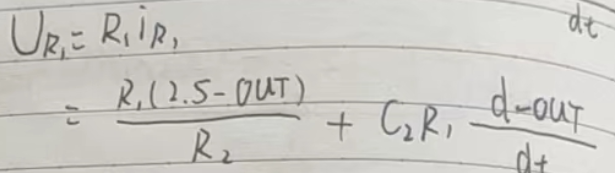 dt
U_{R_1} = R_1 i_{R_1}
= \frac{R_1(2.5-OUT)}{R_2} + C_2 R_1 \frac{d-OUT}{dt}